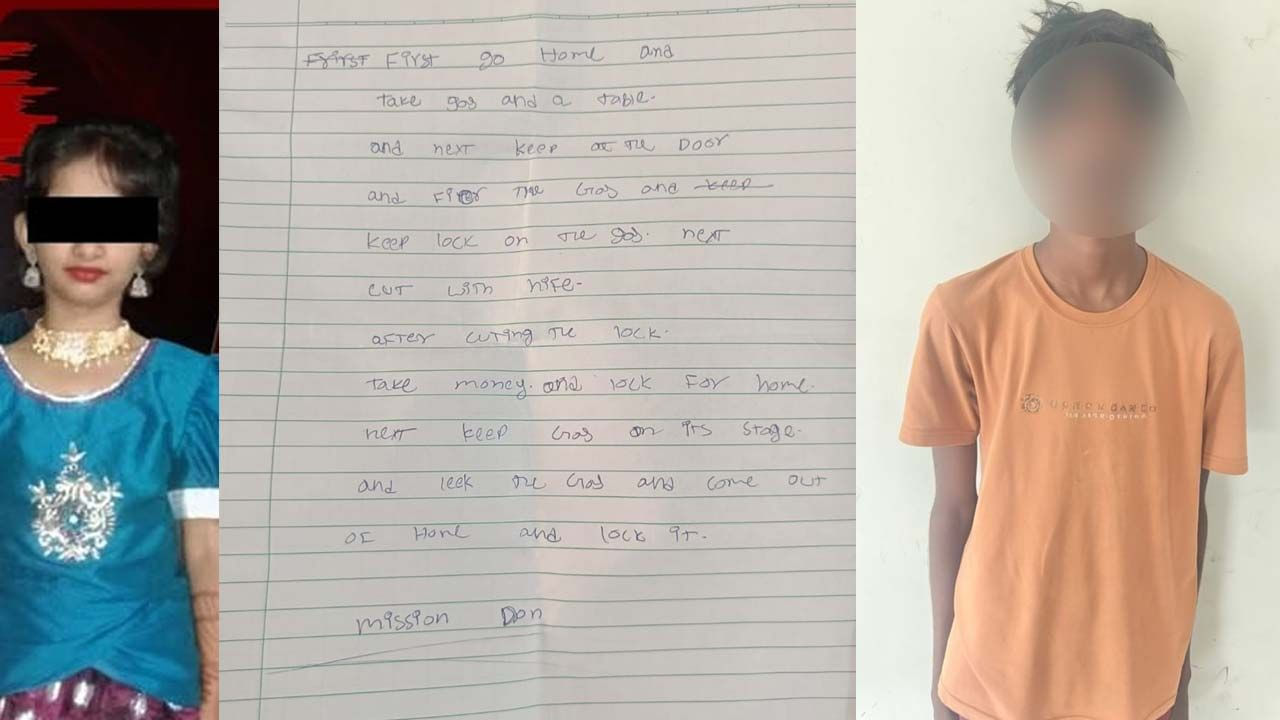 First First go Home and
take gas and a table.
and next keep at the Door
and Firer the Gas and keep
keep lock on the gas. next
cut with nife.
after cuting the lock.
take money. and lock for home.
next keep Gas on its stage.
and leek the Gas and come out
of Home and lock it.
mission Don